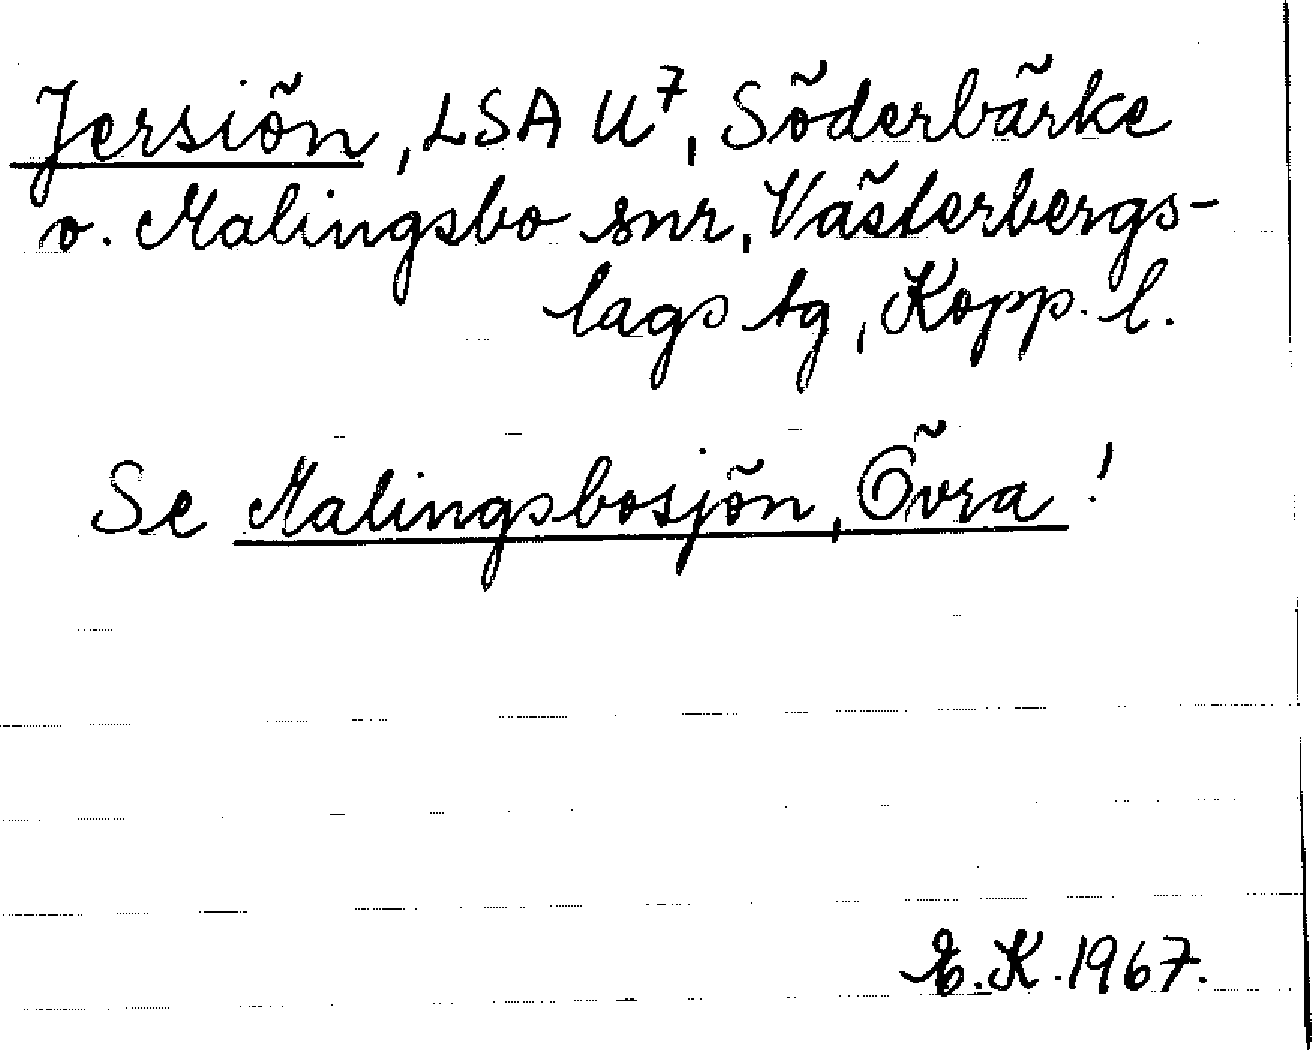 Jersiõn, LSA U⁷, Sõderbãrke
o. Malingsbo snr, Vãsterbergs-
lags tg, Kopp. l.
Se Malingsbosjõn, Õvra!
E.K. 1967.